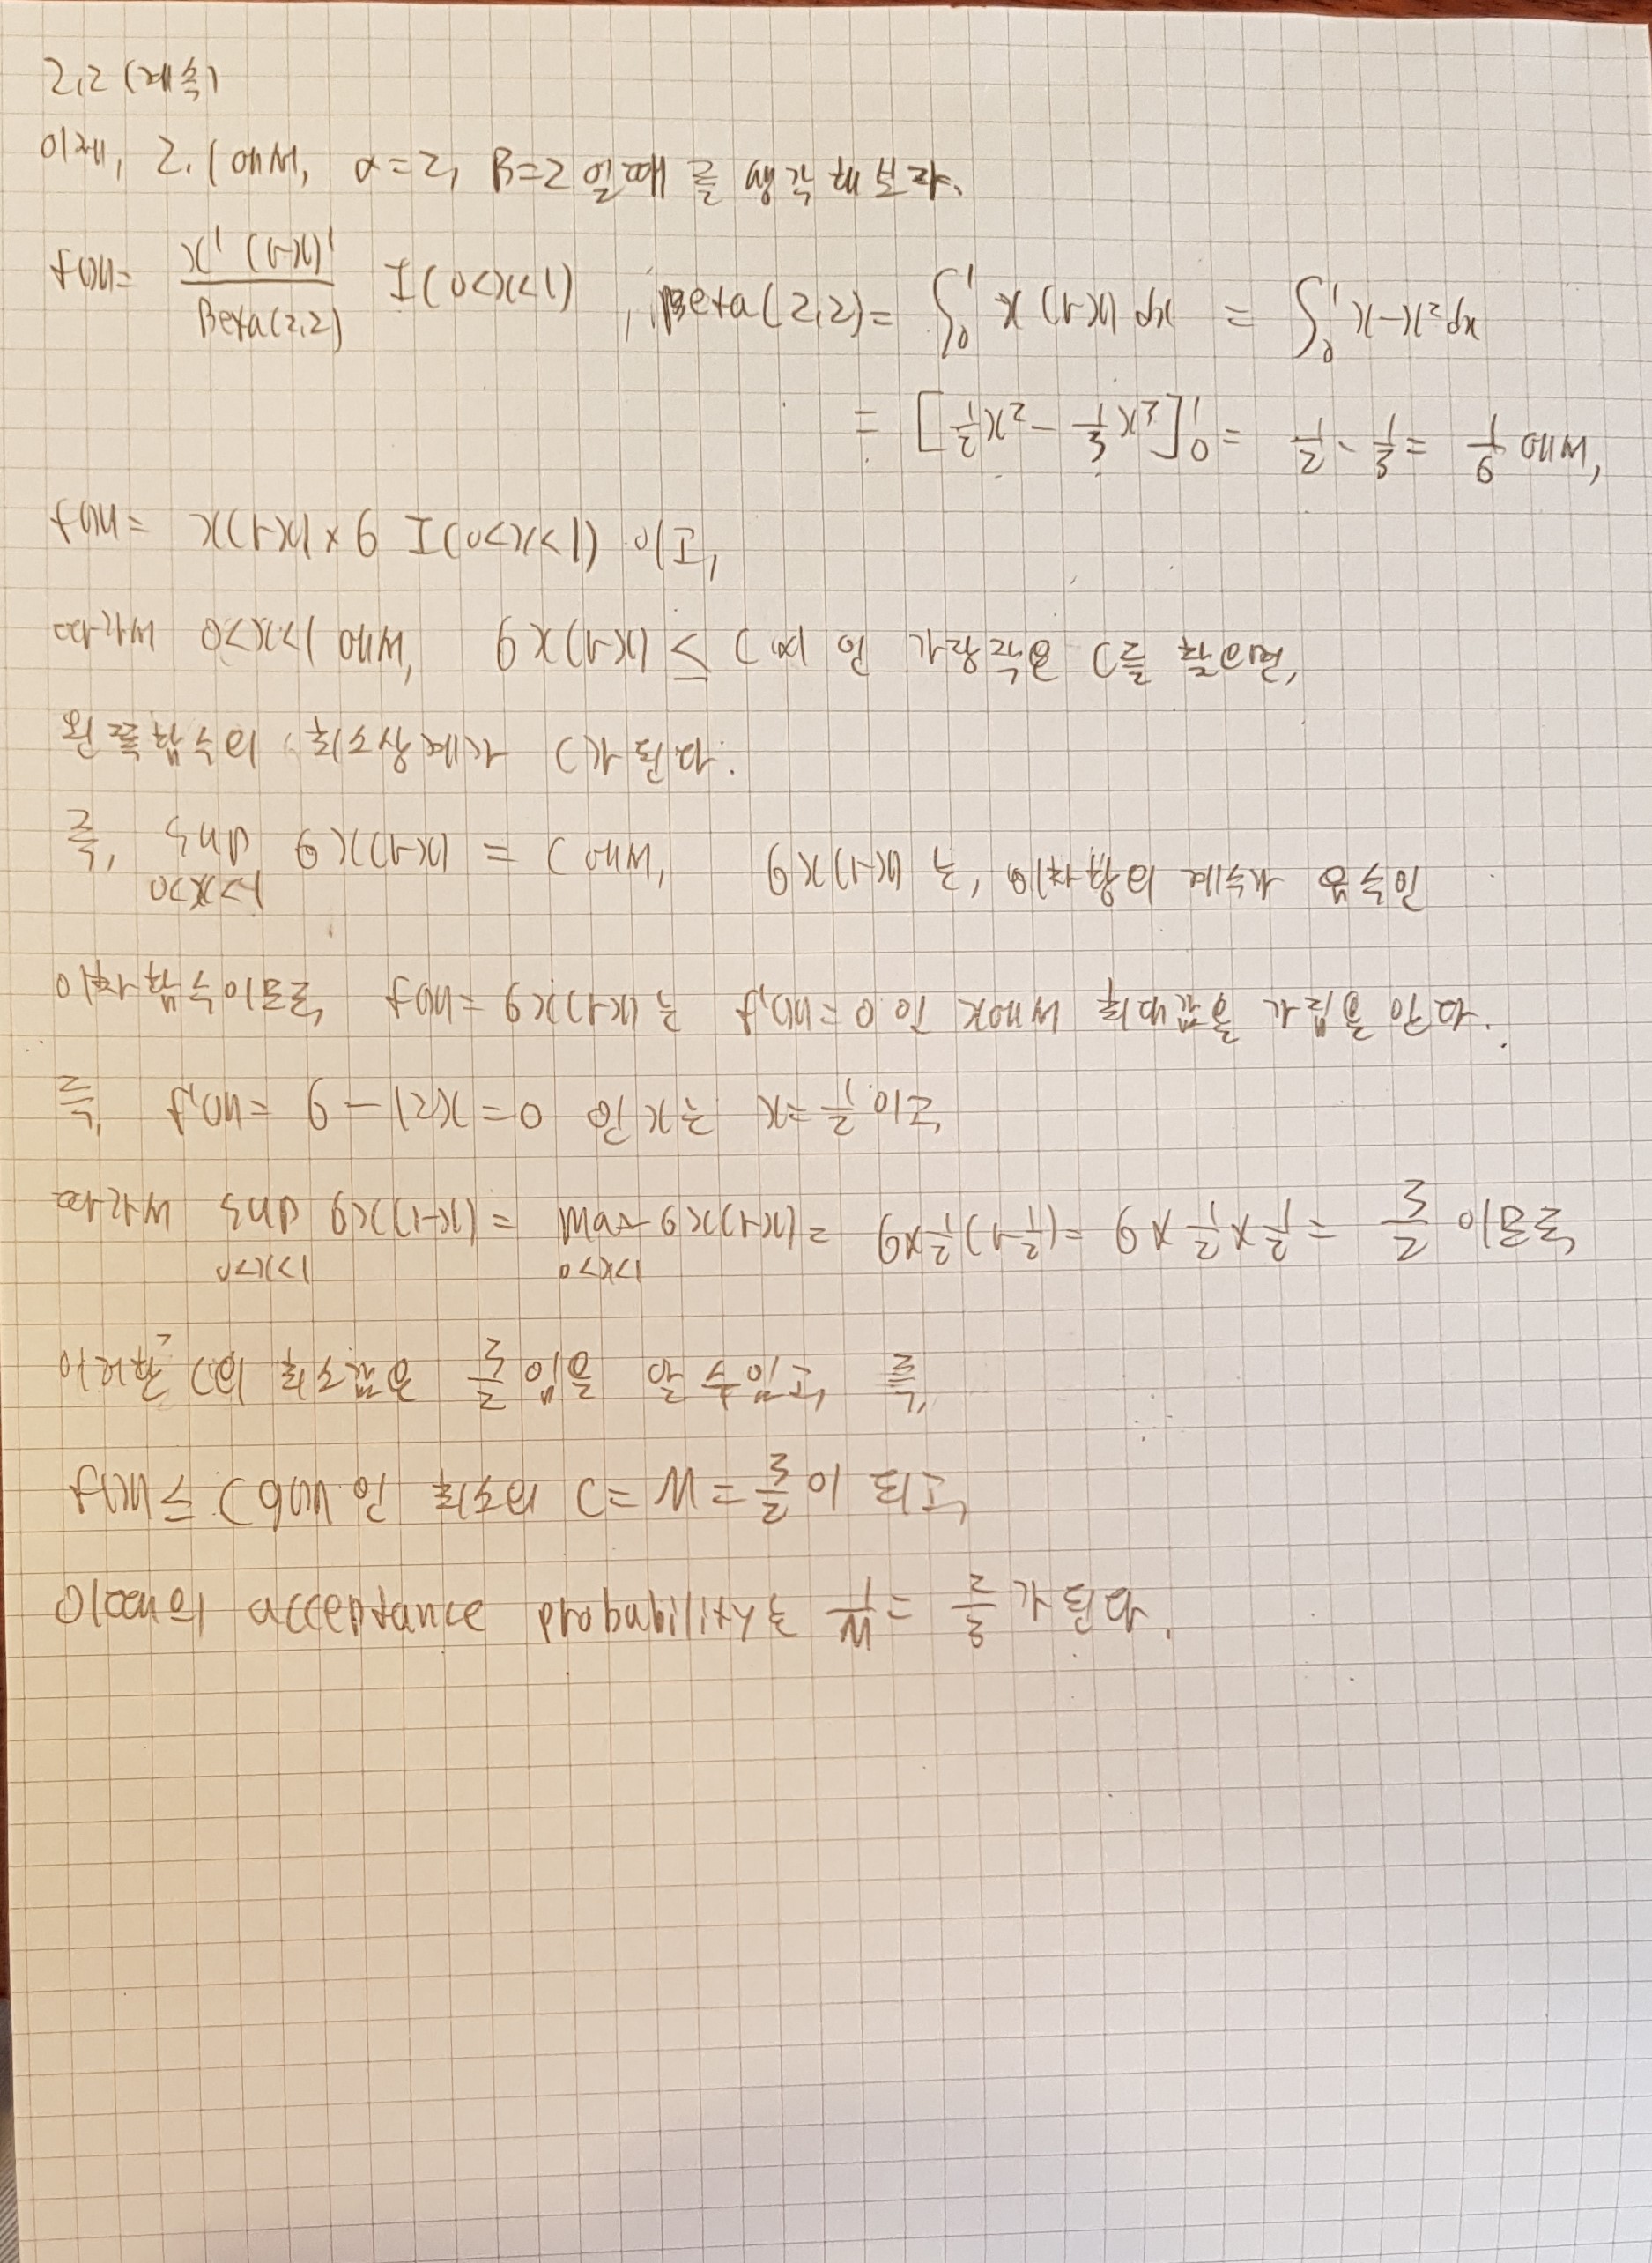 2.2 (계속)
이제, 2.1에서, α=2, β=2 일때를 생각해보자.
f(x)= x¹(1-x)¹ / Beta(2,2) I(0<x<1), Beta(2,2)= ∫₀¹ x(1-x)dx = ∫₀¹ x-x²dx
= [½x² - ⅓x³]₀¹ = 1/2 - 1/3 = 1/6 에서,
f(x)= x(1-x)×6 I(0<x<1) 이고,
따라서 0<x<1 에서, 6x(1-x) ≤ C 인 가장작은 C를 찾으면,
왼쪽함수의 최소상계가 C가 된다.
즉, sup 0<x<1 6x(1-x) = C 에서, 6x(1-x)는, 이차항의 계수가 음수인
이차함수이므로, f(x)= 6x(1-x)는 f'(x)=0 인 x에서 최대값을 가짐을 안다.
즉, f'(x)= 6-12x=0 인 x는 x=1/2 이고,
따라서 sup 0<x<1 6x(1-x)= max 0<x<1 6x(1-x)= 6×½(1-½)= 6×½×½ = 3/2 이므로
이러한 C의 최소값은 3/2 임을 알 수 있고, 즉,
f(x) ≤ C g(x) 인 최소의 C=M= 3/2 이 되고,
이때의 acceptance probability는 1/M = 2/3 가 된다.